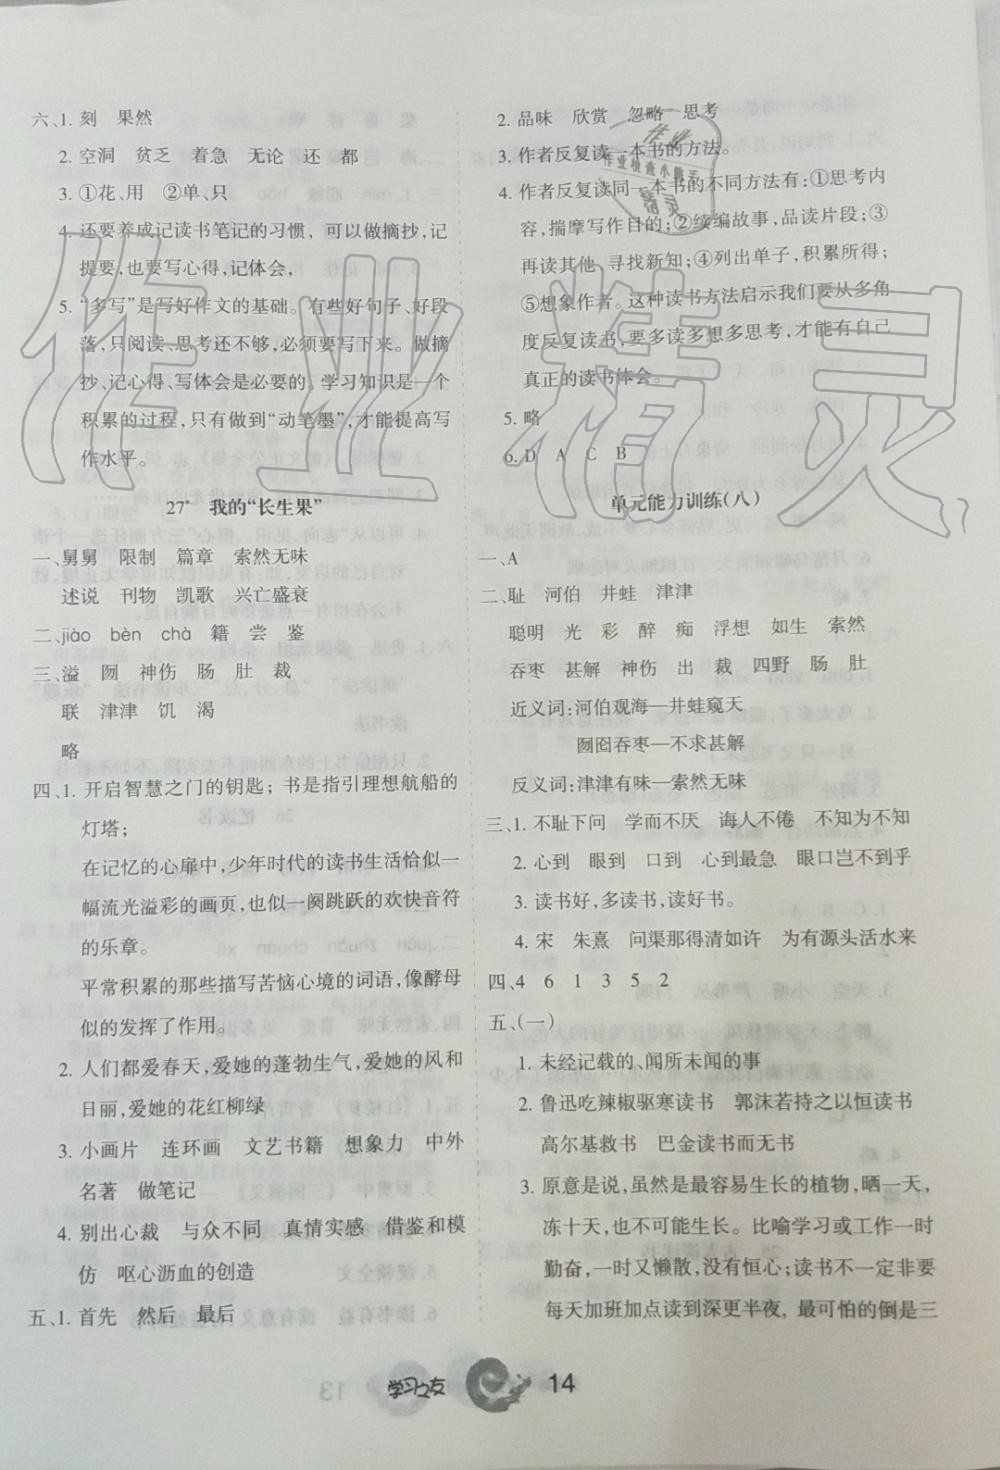 六、1. 刻　果然
2. 空洞　贫乏　着急　无论　还　都
3. ①花、用　②单、只
4. 还要养成记读书笔记的习惯，可以做摘抄，记
提要，也要写心得，记体会，
5. “多写”是写好作文的基础。有些好句子、好段
落，只阅读、思考还不够，必须要写下来。做摘
抄、记心得、写体会是必要的。学习知识是一个
积累的过程，只有做到“动笔墨”，才能提高写
作水平。
27* 我的“长生果”
一、舅舅　限制　篇章　索然无味
述说　刊物　凯歌　兴亡盛衰
二、jiào　bèn　chà　籍　尝　鉴
三、溢　囫　神伤　肠　肚　裁
联　津津　饥　渴
略
四、1. 开启智慧之门的钥匙；书是指引理想航船的
灯塔；
在记忆的心扉中，少年时代的读书生活恰似一
幅流光溢彩的画页，也似一阕跳跃的欢快音符
的乐章。
平常积累的那些描写苦恼心境的词语，像酵母
似的发挥了作用。
2. 人们都爱春天，爱她的蓬勃生气，爱她的风和
日丽，爱她的花红柳绿
3. 小画片　连环画　文艺书籍　想象力　中外
名著　做笔记
4. 别出心裁　与众不同　真情实感　借鉴和模
仿　呕心沥血的创造
五、1. 首先　然后　最后
2. 品味　欣赏　忽略　思考
3. 作者反复读一本书的方法。
4. 作者反复读同一本书的不同方法有：①思考内
容，揣摩写作目的；②续编故事，品读片段；③
再读其他，寻找新知；④列出单子，积累所得；
⑤想象作者。这种读书方法启示我们要从多角
度反复读书，要多读多想多思考，才能有自己
真正的读书体会。
5. 略
6. D　A　C　B
单元能力训练（八）
一、A
二、耻　河伯　井蛙　津津
聪明　光　彩　醉　痴　浮想　如生　索然
吞枣　甚解　神伤　出　裁　四野　肠　肚
近义词：河伯观海—井蛙窥天
囫囵吞枣—不求甚解
反义词：津津有味—索然无味
三、1. 不耻下问　学而不厌　诲人不倦　不知为不知
2. 心到　眼到　口到　心到最急　眼口岂不到乎
3. 读书好，多读书，读好书。
4. 宋　朱熹　问渠那得清如许　为有源头活水来
四、4　6　1　3　5　2
五、（一）
1. 未经记载的、闻所未闻的事
2. 鲁迅吃辣椒驱寒读书　郭沫若持之以恒读书
高尔基救书　巴金读书而无书
3. 原意是说，虽然是最容易生长的植物，晒一天，
冻十天，也不可能生长。比喻学习或工作一时
勤奋，一时又懒散，没有恒心；读书不一定非要
每天加班加点读到深更半夜，最可怕的倒是三
学习之友
14
作业精灵
作业
作业检查小帮手
精灵